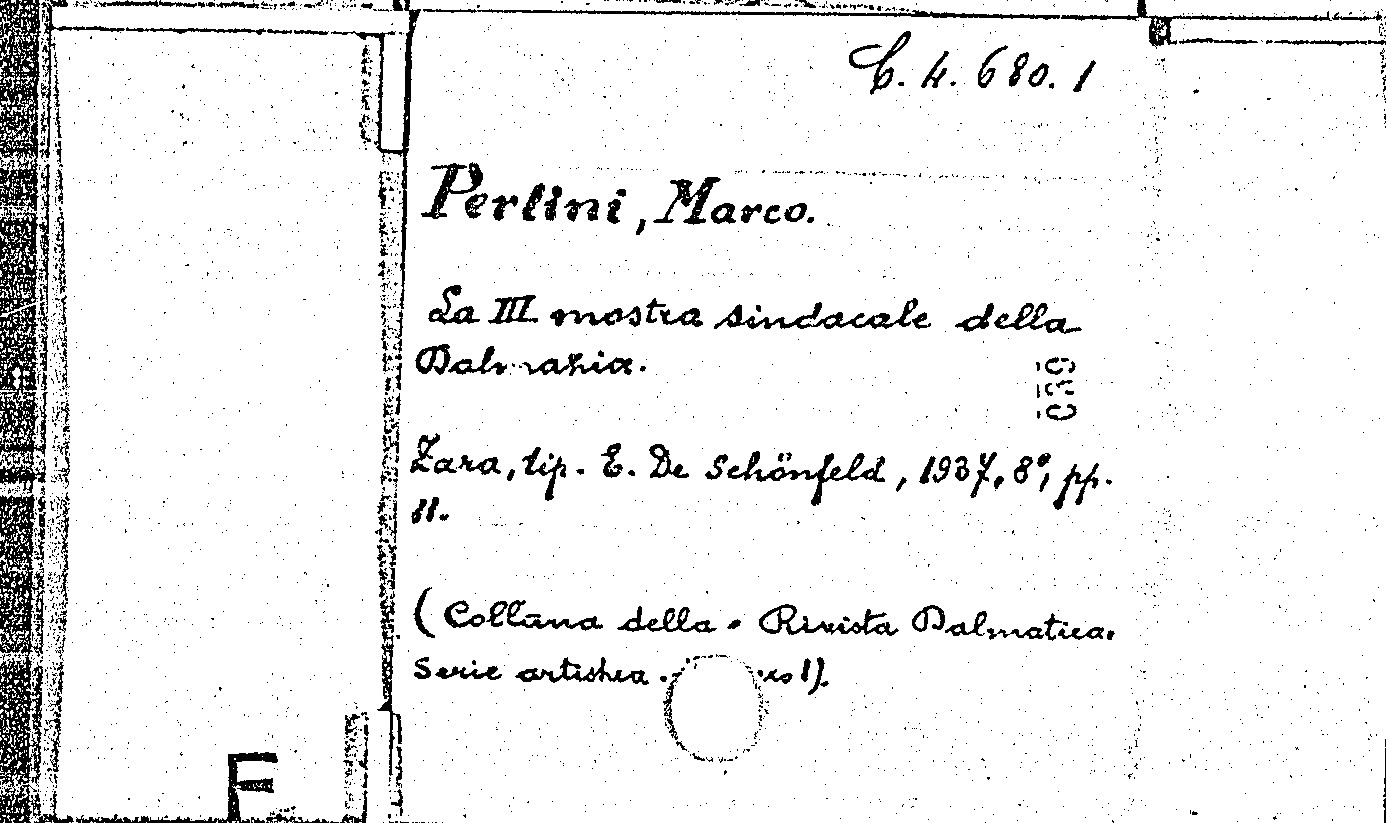 C. 4. 680. 1
Perlini, Marco.
La III mostra sindacale della
Dalmazia.
Zara, tip. E. De Schönfeld, 1937, 8°, pp.
11.
(Collana della "Rivista Dalmatica.
Serie artistica
1).
F